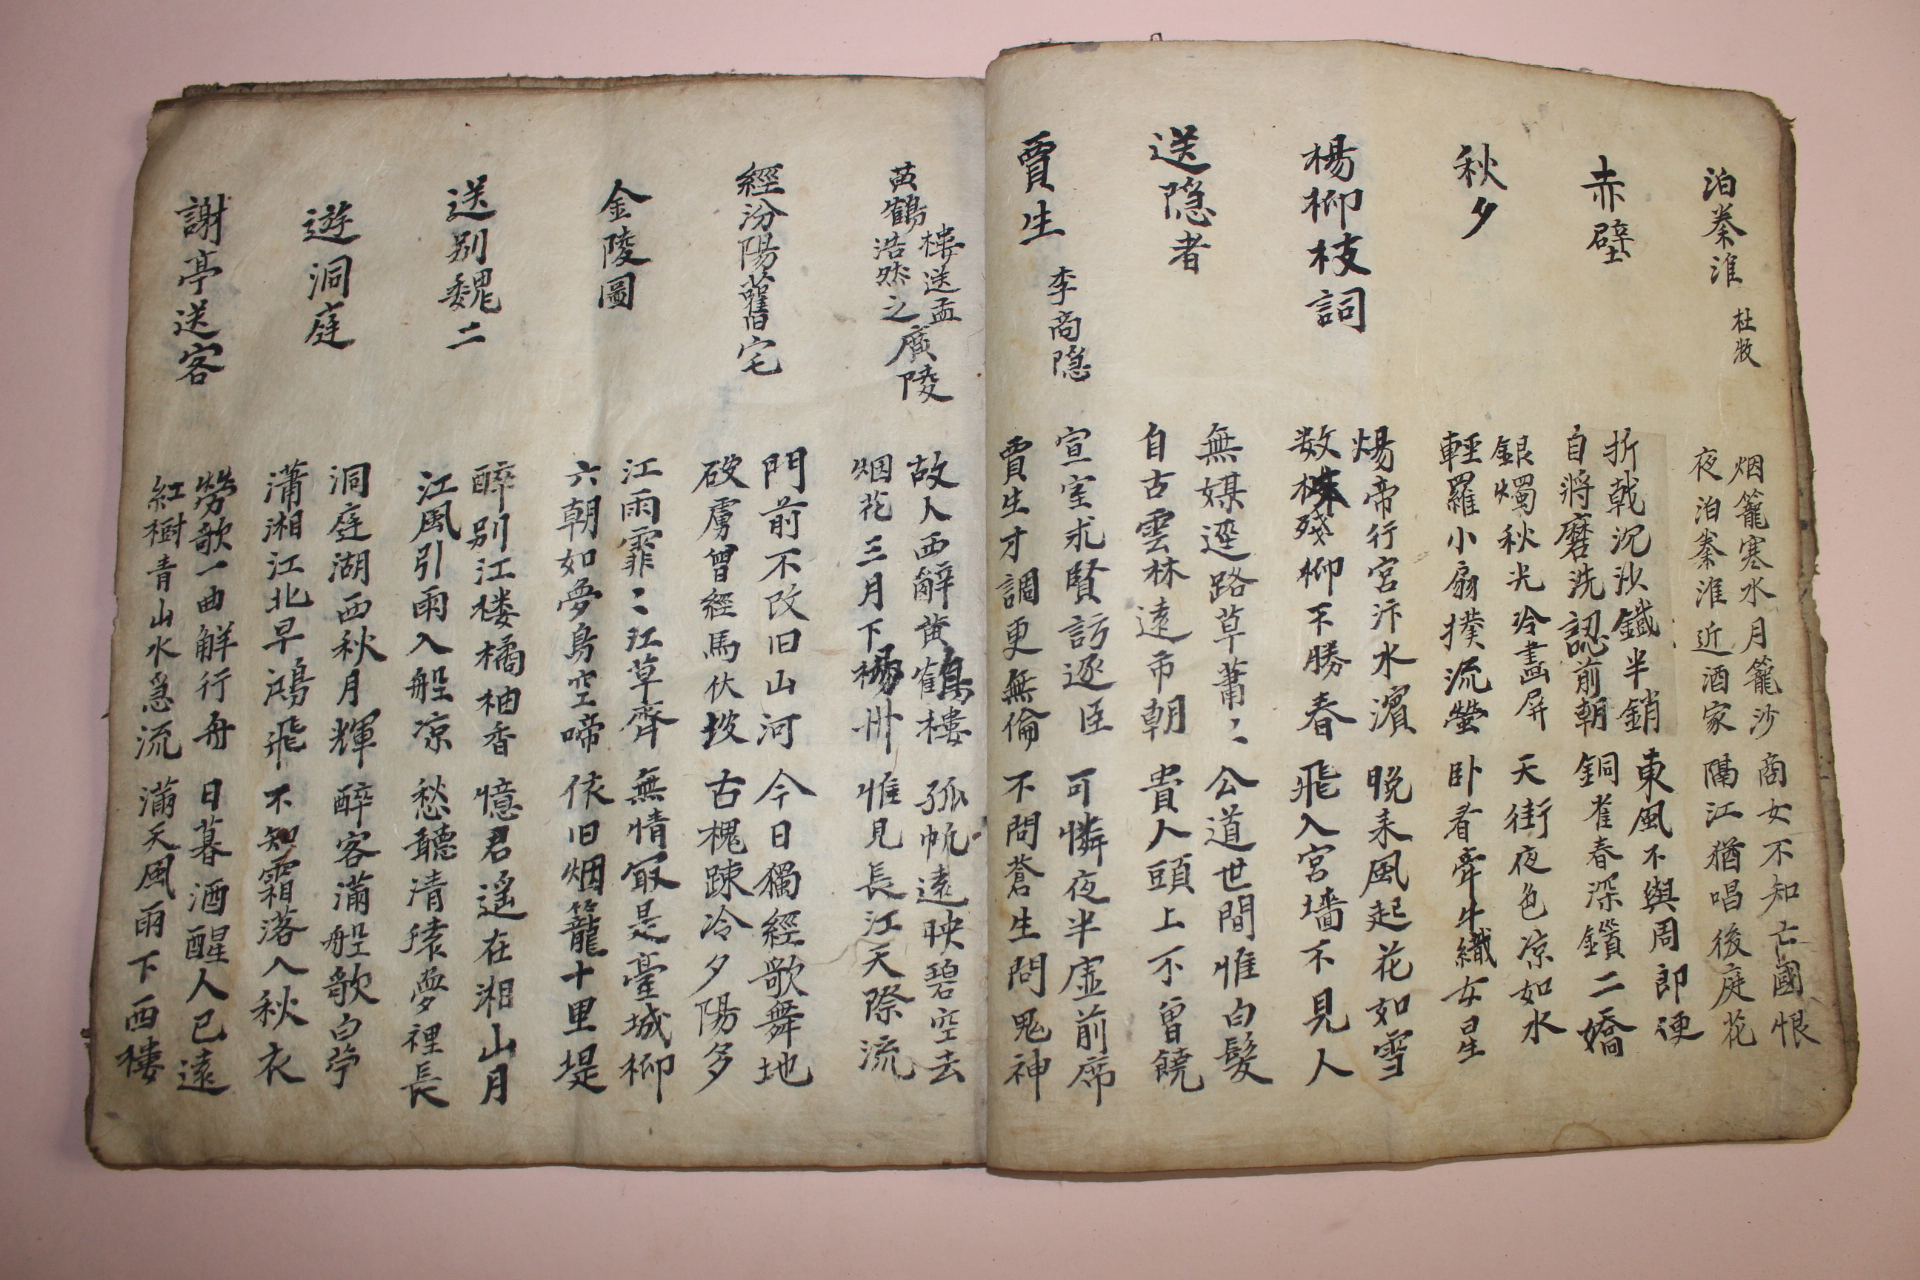 泊秦淮
杜牧
烟籠寒水月籠沙 商女不知亡國恨
夜泊秦淮近酒家 隔江猶唱後庭花
赤壁
折戟沉沙鐵半銷 東風不與周郎便
自將磨洗認前朝 銅雀春深鎖二嬌
秋夕
銀燭秋光冷畵屏 天街夜色凉如水
輕羅小扇撲流螢 卧看牽牛織女星
楊柳枝詞
煬帝行宮汴水濱 晚來風起花如雪
数株殘柳不勝春 飛入宮墻不見人
送隐者
無媒逕路草蕭〻 公道世間惟白髮
自古雲林遠市朝 貴人頭上不曾饒
賈生
李商隐
宣室求賢訪逐臣 可憐夜半虛前席
賈生才調更無倫 不問蒼生問鬼神
黃鶴樓送孟浩然之廣陵
故人西辭黃鶴樓 孤帆遠映碧空去
烟花三月下楊州 惟見長江天際流
經汾陽舊宅
門前不改旧山河 今日獨經歌舞地
破虜曾經馬伏坡 古槐踈冷夕陽多
金陵圖
江雨霏〻江草齊 無情㝡是臺城柳
六朝如夢鳥空啼 依旧烟籠十里堤
送别魏二
醉别江楼橘柚香 憶君遥在湘山月
江風引雨入船凉 愁聽清猿夢裡長
遊洞庭
洞庭湖西秋月輝 醉客滿船歌白苧
瀟湘江北早鴻飛 不知霜落入秋衣
謝亭送客
勞歌一曲解行舟 日暮酒醒人已遠
紅樹青山水急流 滿天風雨下西樓